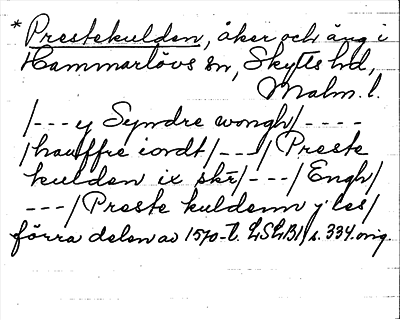 * Prestekulden, åker och äng i
Hammarlövs sn, Skytts hd,
Malm. l.
/--- y Syndre wongh/----
/hauffre iordt/---/Preste
kulden ix skr̄/---/Engh/
---/Preste kuldenn y les/
förra delen av 1570-t. LSLB1 s. 334 orig.